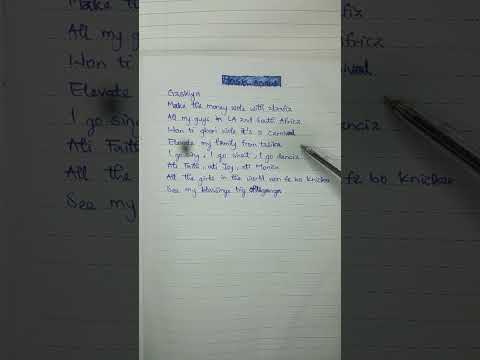 Gaskiya
Make the money with
All my guys in LA and South Africa
Wan ti gbon wole it's a carnival
Elevate my family from
I go sing, I go shout, I go
Ati Faith, ati Joy, ati Monica
All the girls in the world wan fe bo knicker
See my blessings big